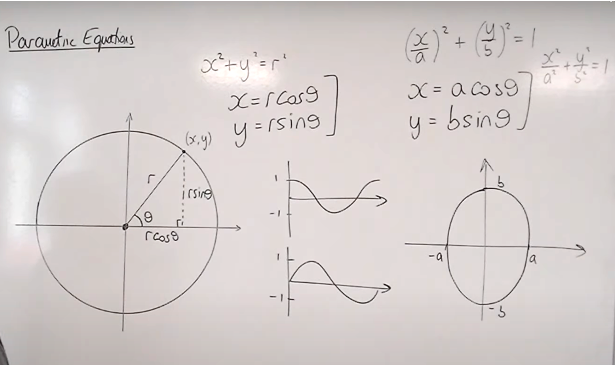 Parametric Equations
x² + y² = r²
x = rcosθ
y = rsinθ
(x/a)² + (y/b)² = 1
x²/a² + y²/b² = 1
x = acosθ
y = bsinθ
(x,y)
r
rsinθ
θ
rcosθ
1
-1
1
-1
b
-a
a
-b